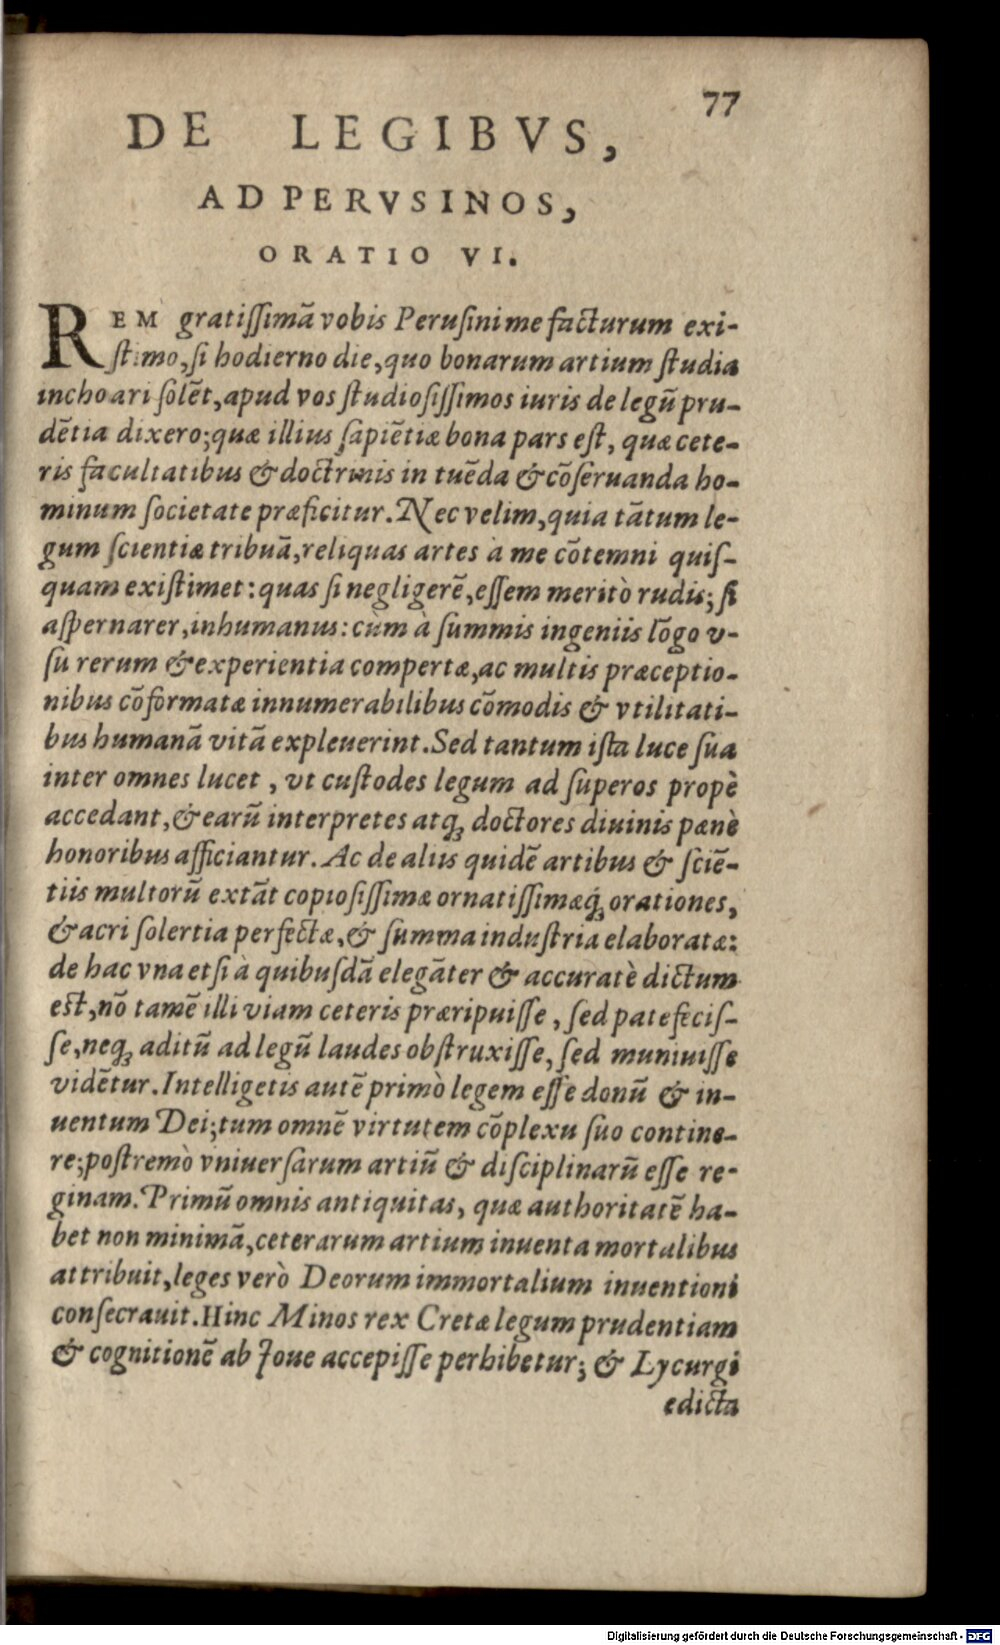 77
DE LEGIBVS,
AD PERVSINOS,
ORATIO VI.
REM gratiſſimā vobis Peruſini me facturum exi-
ſtimo, ſi hodierno die, quo bonarum artium ſtudia
inchoari ſolēt, apud vos ſtudioſiſſimos iuris de legū pru-
dētia dixero; quæ illius ſapiētiæ bona pars eſt, quæ cete-
ris facultatibus & doctrinis in tuēda & cōſeruanda ho-
minum ſocietate præficitur. Nec velim, quia tātum le-
gum ſcientiæ tribuā, reliquas artes à me cōtemni quiſ-
quam exiſtimet: quas ſi negligerē, eſſem meritò rudis; ſi
aſpernarer, inhumanus: cùm à ſummis ingeniis lōgo v-
ſu rerum & experientia compertæ, ac multis præceptio-
nibus cōformatæ innumerabilibus cōmodis & vtilitati-
bus humanā vitā expleuerint. Sed tantum iſta luce ſua
inter omnes lucet, vt cuſtodes legum ad ſuperos propè
accedant, & earū interpretes atq; doctores diuinis pænè
honoribus afficiantur. Ac de aliis quidē artibus & ſciē-
tiis multorū extāt copioſiſſimæ ornatiſſimæq́; orationes,
& acri ſolertia perfectæ, & ſumma induſtria elaboratæ:
de hac vna etſi à quibuſdā elegāter & accuratè dictum
eſt, nō tamē illi viam ceteris præripuiſſe, ſed patefeciſ-
ſe, neq; aditū ad legū laudes obſtruxiſſe, ſed muniuiſſe
vidētur. Intelligetis autē primò legem eſſe donū & in-
uentum Dei; tum omnē virtutem cōplexu ſuo contine-
re; poſtremò vniuerſarum artiū & diſciplinarū eſſe re-
ginam. Primū omnis antiquitas, quæ authoritatē ha-
bet non minimā, ceterarum artium inuenta mortalibus
attribuit, leges verò Deorum immortalium inuentioni
conſecrauit. Hinc Minos rex Cretæ legum prudentiam
& cognitionē ab Ioue accepiſſe perhibetur; & Lycurgi
edicta
Digitalisierung gefördert durch die Deutsche Forschungsgemeinschaft - DFG